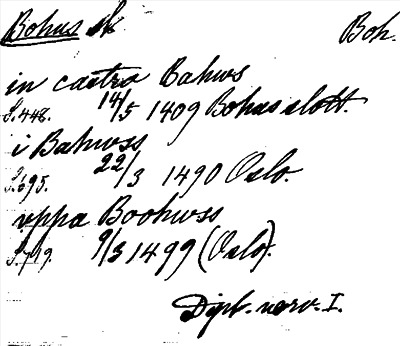 Bohus sk Boh.
in castro Bahws
S. 448. 14/5 1409 Bohus slott.
i Bahwss
S. 695. 22/3 1490 Oslo.
vppa Boohwss
S. 719. 9/3 1499 (Oslo).
Dipl. norv. I.